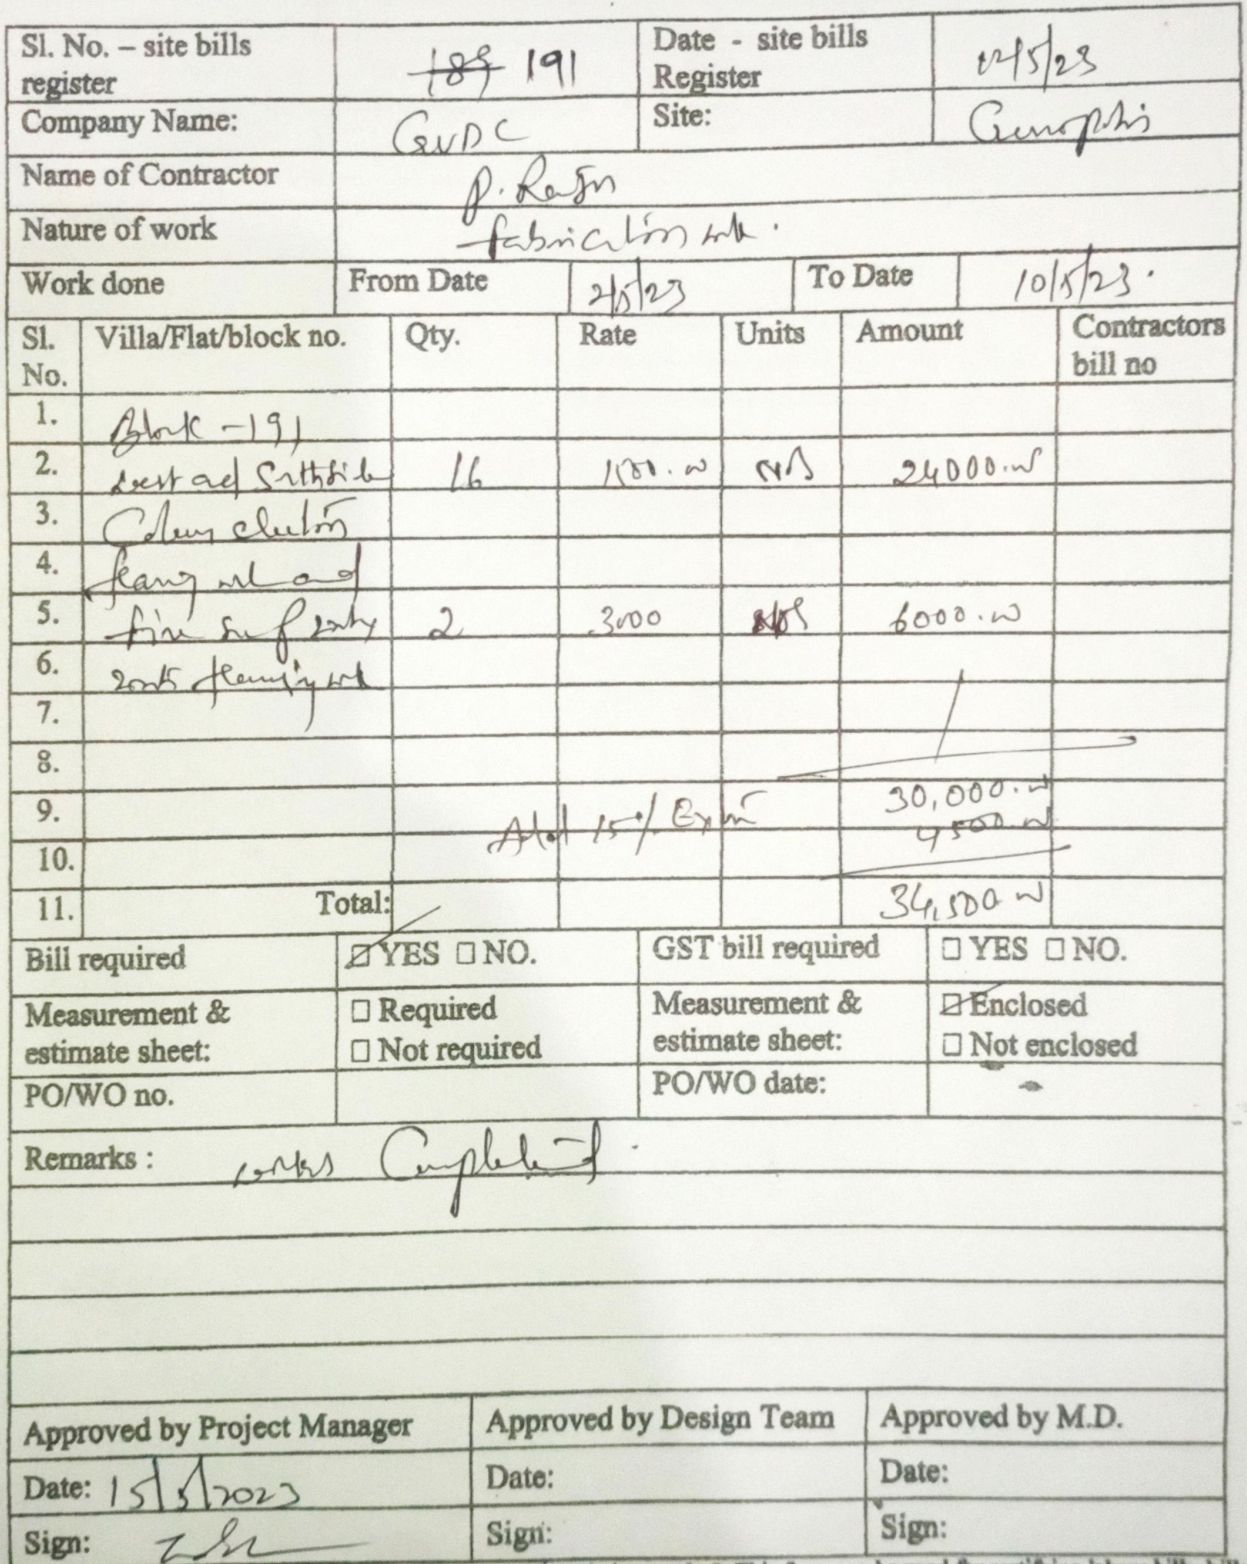 Sl. No. – site bills register 189 191 Date - site bills Register 12/5/23
Company Name: GVDC Site: Genopolis
Name of Contractor P. Raju
Nature of work fabrication work.
Work done From Date 2/5/23 To Date 10/5/23.
Sl. No. Villa/Flat/block no. Qty. Rate Units Amount Contractors bill no
1. Block -191
2. west and South side 16 1500.00 nos 24000.00
3.
4. work and
5. 2 3000 nos 6000.00
6. work
7.
8.
9. 30,000.00
Add 15% Extra 4500.00
10.
11. Total: 34,500.00
Bill required ☑ YES ☐ NO. GST bill required ☐ YES ☐ NO.
Measurement & estimate sheet: ☐ Required ☐ Not required Measurement & estimate sheet: ☑ Enclosed ☐ Not enclosed
PO/WO no. PO/WO date:
Remarks : works Completed.
Approved by Project Manager Approved by Design Team Approved by M.D.
Date: 15/5/2023 Date: Date:
Sign: Sign: Sign: